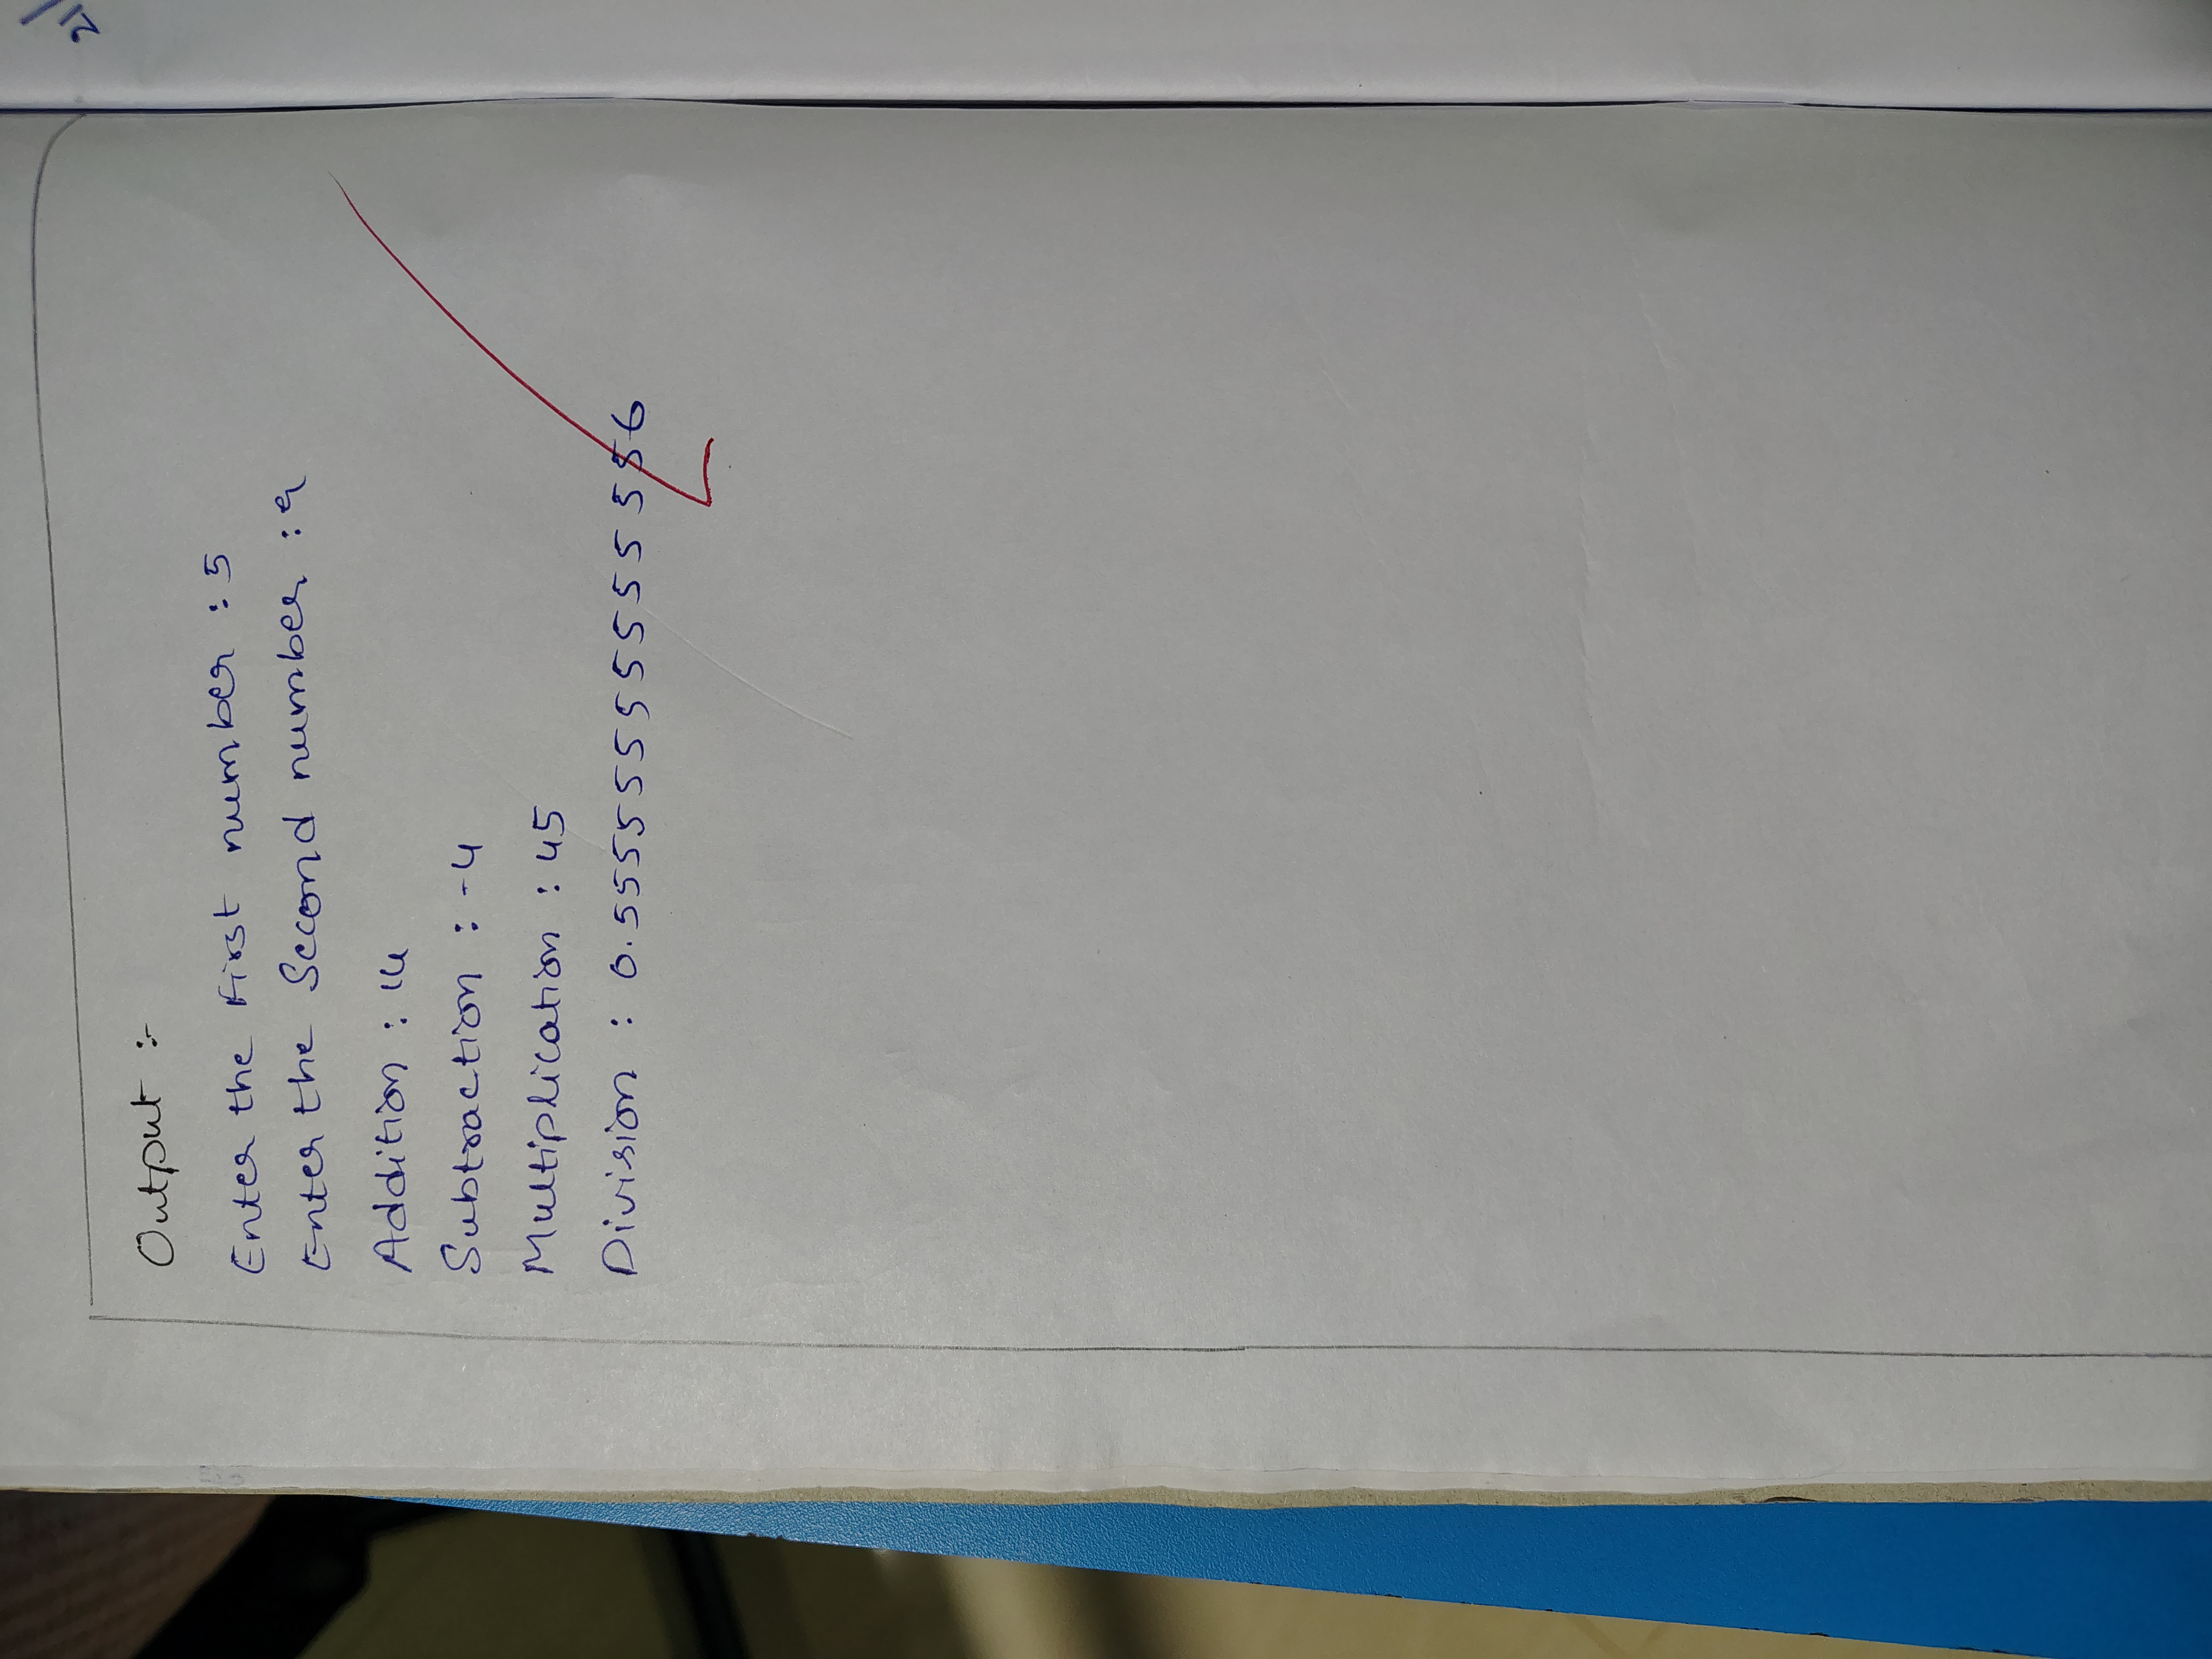 Output :-
Enter the First number : 5
Enter the Second number : 9
Addition : 14
Subtraction : -4
Multiplication : 45
Division : 0.5555555555555556
21/